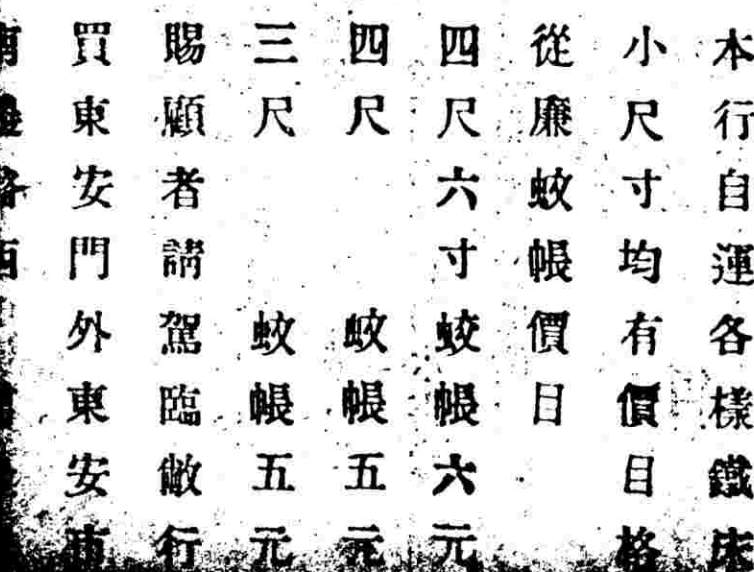 本行自運各樣鐵床
小尺寸均有價目格
從廉蚊帳價目
四尺六寸蚊帳六元
四尺蚊帳五元
三尺蚊帳五元
賜顧者請駕臨敝行
買東安門外東安市
南